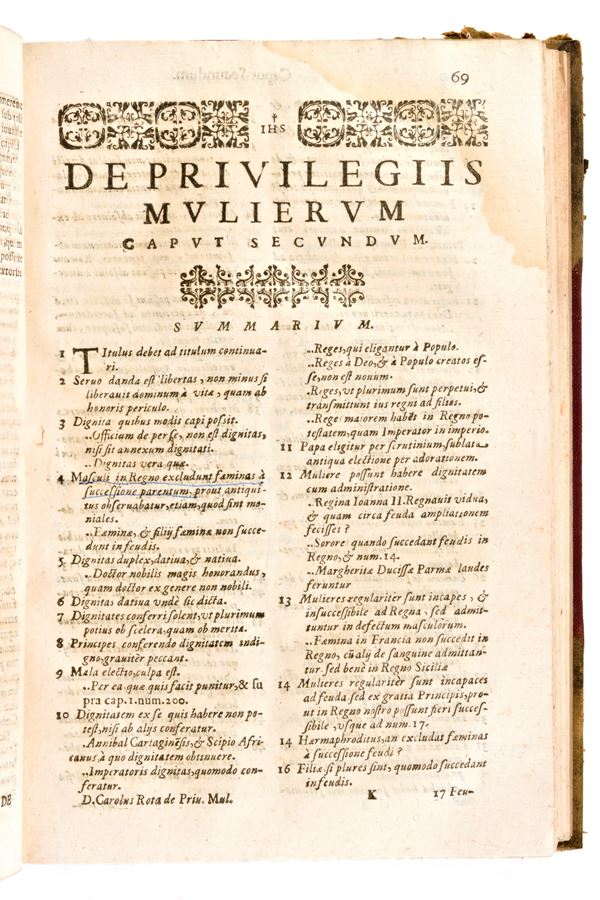 69
IHS
DE PRIVILEGIIS
MVLIERVM
CAPVT SECVNDVM.
SVMMARIVM.
1 Titulus debet ad titulum continua-
ri.
2 Seruo danda est libertas, non minus si
liberauit dominum à vita, quam ab
honoris periculo.
3 Dignita quibus modis capi possit.
..Officium de per se, non est dignitas,
nisi sit annexum dignitati.
..Dignitas vera quæ.
4 Masculi in Regno excludunt fæminas à
successione parentum, prout antiqui-
tus obseruabatur, etiam, quod sint mo-
niales.
..Fæminæ, & filij fæminæ non succe-
dunt in feudis.
5 Dignitas duplex, datiua, & natiua.
..Doctor nobilis magis honorandus,
quam doctor ex genere non nobili.
6 Dignitas datiua vndè sic dicta.
7 Dignitates conferri solent, vt plurimum
potius ob scelera, quam ob merita.
8 Principes conferendo dignitatem indi-
gno, grauitèr peccant.
9 Mala electio, culpa est.
..Per ea quæ quis facit punitur, & su
pra cap. 1. num. 200.
10 Dignitatem ex se quis habere non po-
test, nisi ab alijs conferatur.
..Annibal Cartaginẽsis, & Scipio Afri-
canus, à quo dignitatem obtinuere.
..Imperatoris dignitas, quomodo con-
feratur.
D. Carolus Rota de Priu. Mul.
..Reges, qui eligantur à Populo.
..Reges à Deo, & à Populo creatos es-
se, non est nouum.
..Reges, vt plurimum sunt perpetui, &
transmittunt ius regni ad filios.
..Rege maiorem habẽt in Regno po-
testatem, quam Imperator in imperio.
11 Papa eligitur per scrutinium, sublata
antiqua electione per adorationem.
12 Muliere possunt habere dignitatem
cum administratione.
. Regina Ioanna II. Regnauit vidua,
& quam circa feuda ampliationem
fecisset?
..Sorore quando succedant feudis in
Regno, & num. 14.
..Margheritæ Ducissæ Parmæ laudes
feruntur
13 Mulieres regularitèr sunt incapes, &
insuccessibile ad Regna, sed admit-
tuntur in defectum masculorum.
..Fæmina in Francia non succedit in
Regno, cũ alij de sanguine admittan-
tur, sed benè in Regno Siciliæ
14 Mulieres regularitèr sunt incapaces
ad feuda, sed ex gratia Principis, pro-
ut in Regno nostro possunt fieri succes-
sibile, vsque ad num. 17.
14 Hærmaphroditus, an excludat fæminas
à successione feudi?
16 Filiæ si plures sint, quomodo succedant
in feudis.
K 17 Feu-